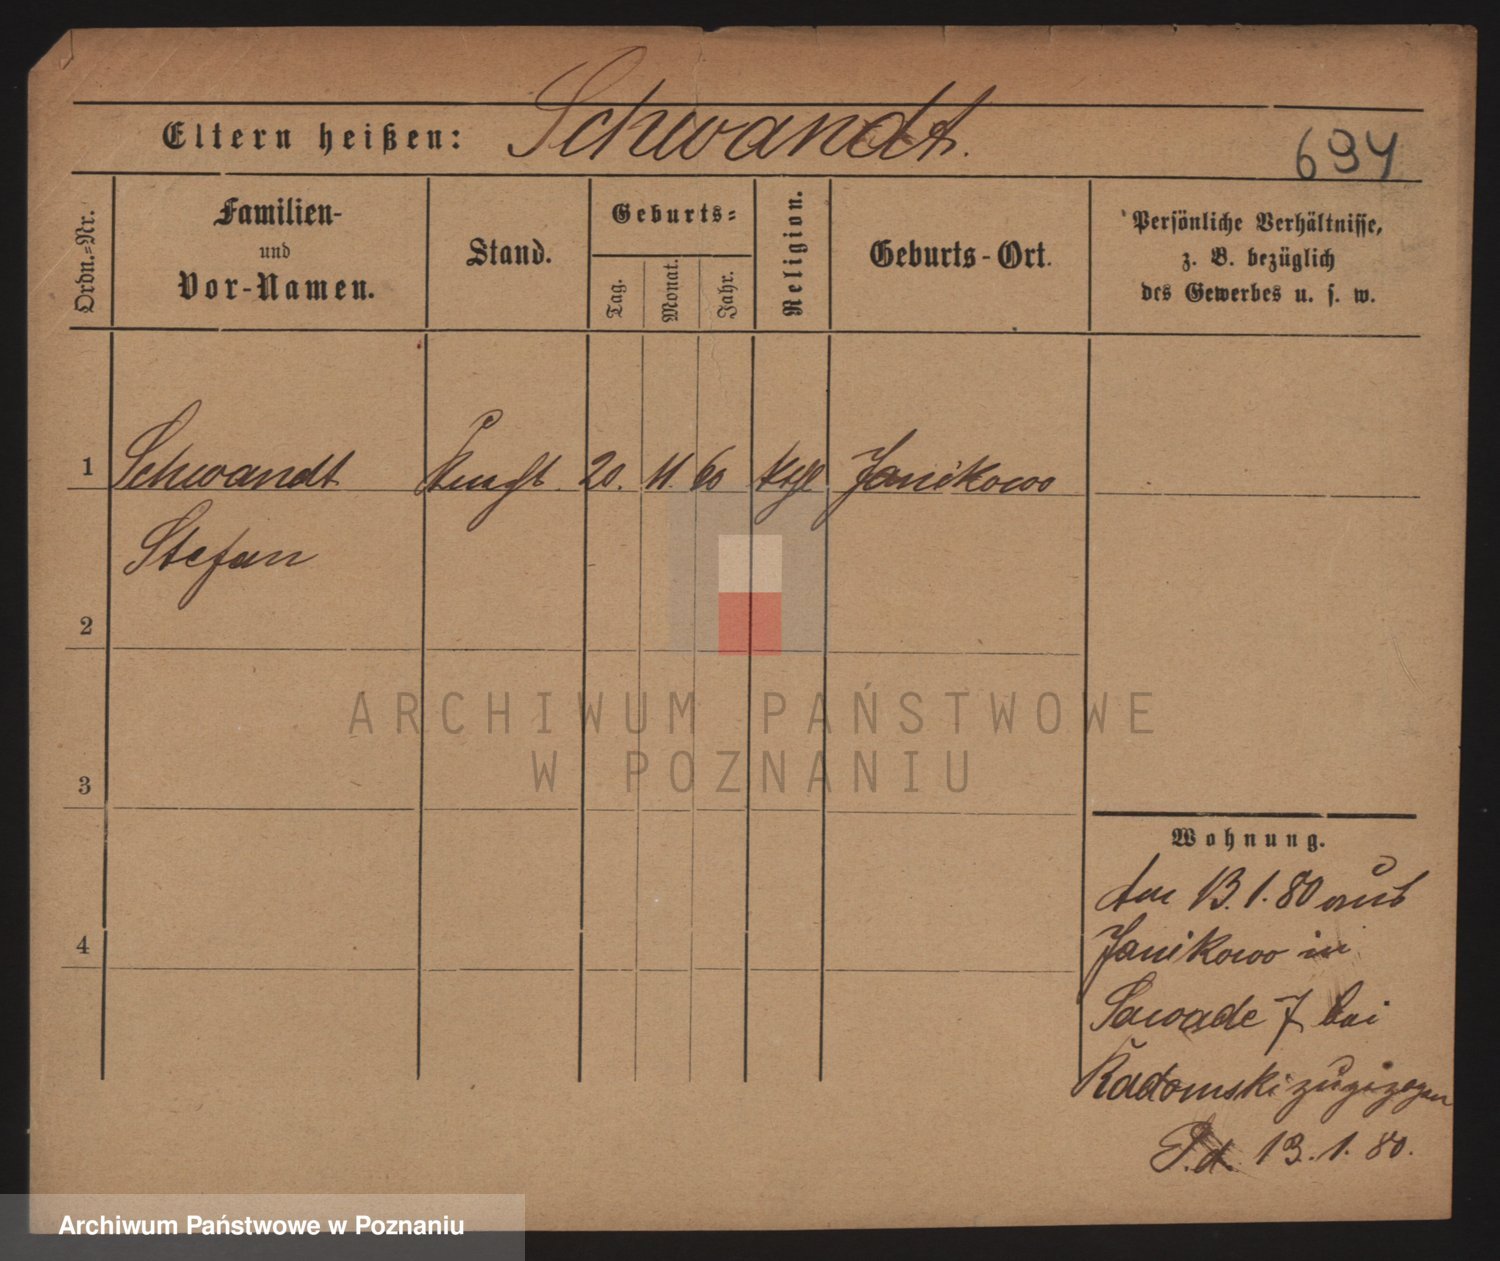 Schwandt.
Eltern heißen:
694
Ordn.=Nr.
Familien-
und
Vor-Namen.
Stand.
Geburts=
Tag.
Monat.
Jahr.
Religion.
Geburts-Ort.
Persönliche Verhältnisse,
z. B. bezüglich
des Gewerbes u. s. w.
1 Schwandt Knecht 20. 11. 60 kthl Janikowo
Stefan
2
3
4
ARCHIWUM PAŃSTWOWE
W POZNANIU
Wohnung.
Am 13.1.80 aus
Janikowo in
Sawade 7 bei
Radomski zugezogen
P.d. 13.1.80.
Archiwum Państwowe w Poznaniu